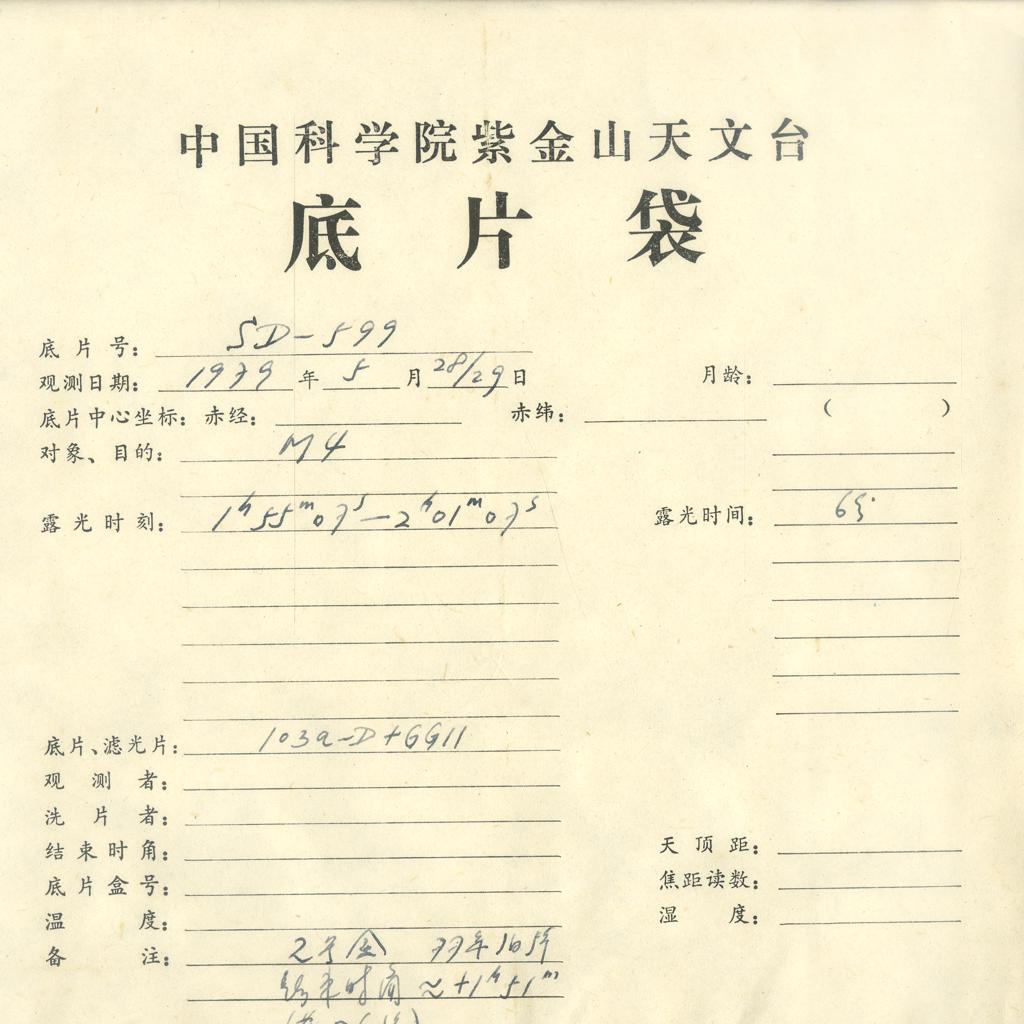 中国科学院紫金山天文台
底片袋
底片号: SD-599
观测日期: 1979年5月28/29日 月龄:
底片中心坐标: 赤经: 赤纬: ( )
对象、目的: M4
露光时刻: 1h55m07s—2h01m07s 露光时间: 6分
底片、滤光片: 103a-D+GG11
观测者:
洗片者:
结束时角: 天顶距:
底片盒号: 焦距读数:
温度: 湿度:
备注: 2号盒 77年16
结束时角 ≈+1h51m